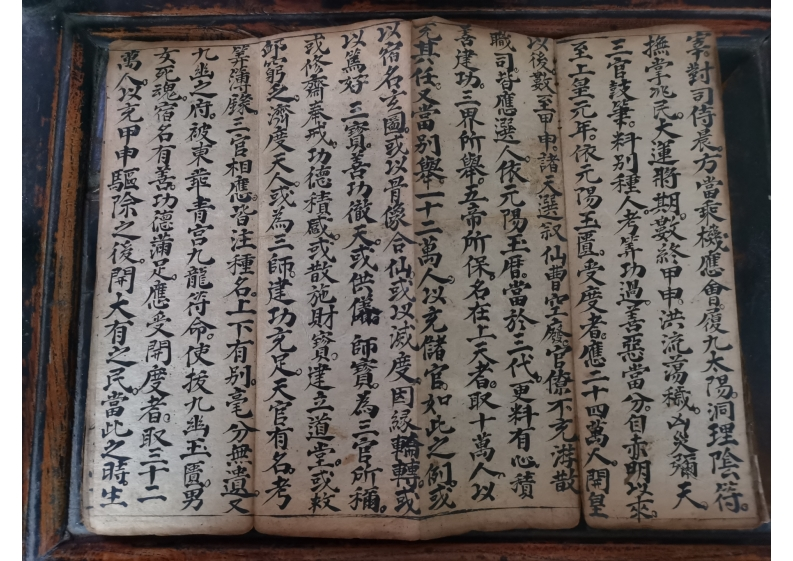 宰對司侍晨方當乘機應會覆九太陽洞理陰符
撫掌兆民大運將期數終甲申洪流蕩穢凶災彌天
三官鼓筆料別種人考筭功過善惡當分自赤明以來
至上皇元年依元陽玉匱受度者應二十四萬人開皇
以後數至甲申諸天選叙仙曹空廢官僚不充遊散
職司皆應選人依元陽玉曆當於三代更料有心積
善建功三界所舉五帝所保名在上天者取十萬人以
充其任又當別舉一十二萬人以充儲官如此之例或
以宿名玄圖或以骨像合仙或以滅度因緣輪轉或
以篤好三寶善功徹天或供養師寶為三官所稱
或修齋奉戒功德積感或散施財寶建立道堂或救
卹窮乏濟度天人或為三師建功充足天官有名考
筭簿錄三官相應皆注種名上下有別毫分無遺又
九幽之府被東華青宮九龍符命使拔九幽玉匱男
女死魂宿名有善功德滿足應受開度者取三十二
萬人以充甲申驅除之後開大有之民當此之時生